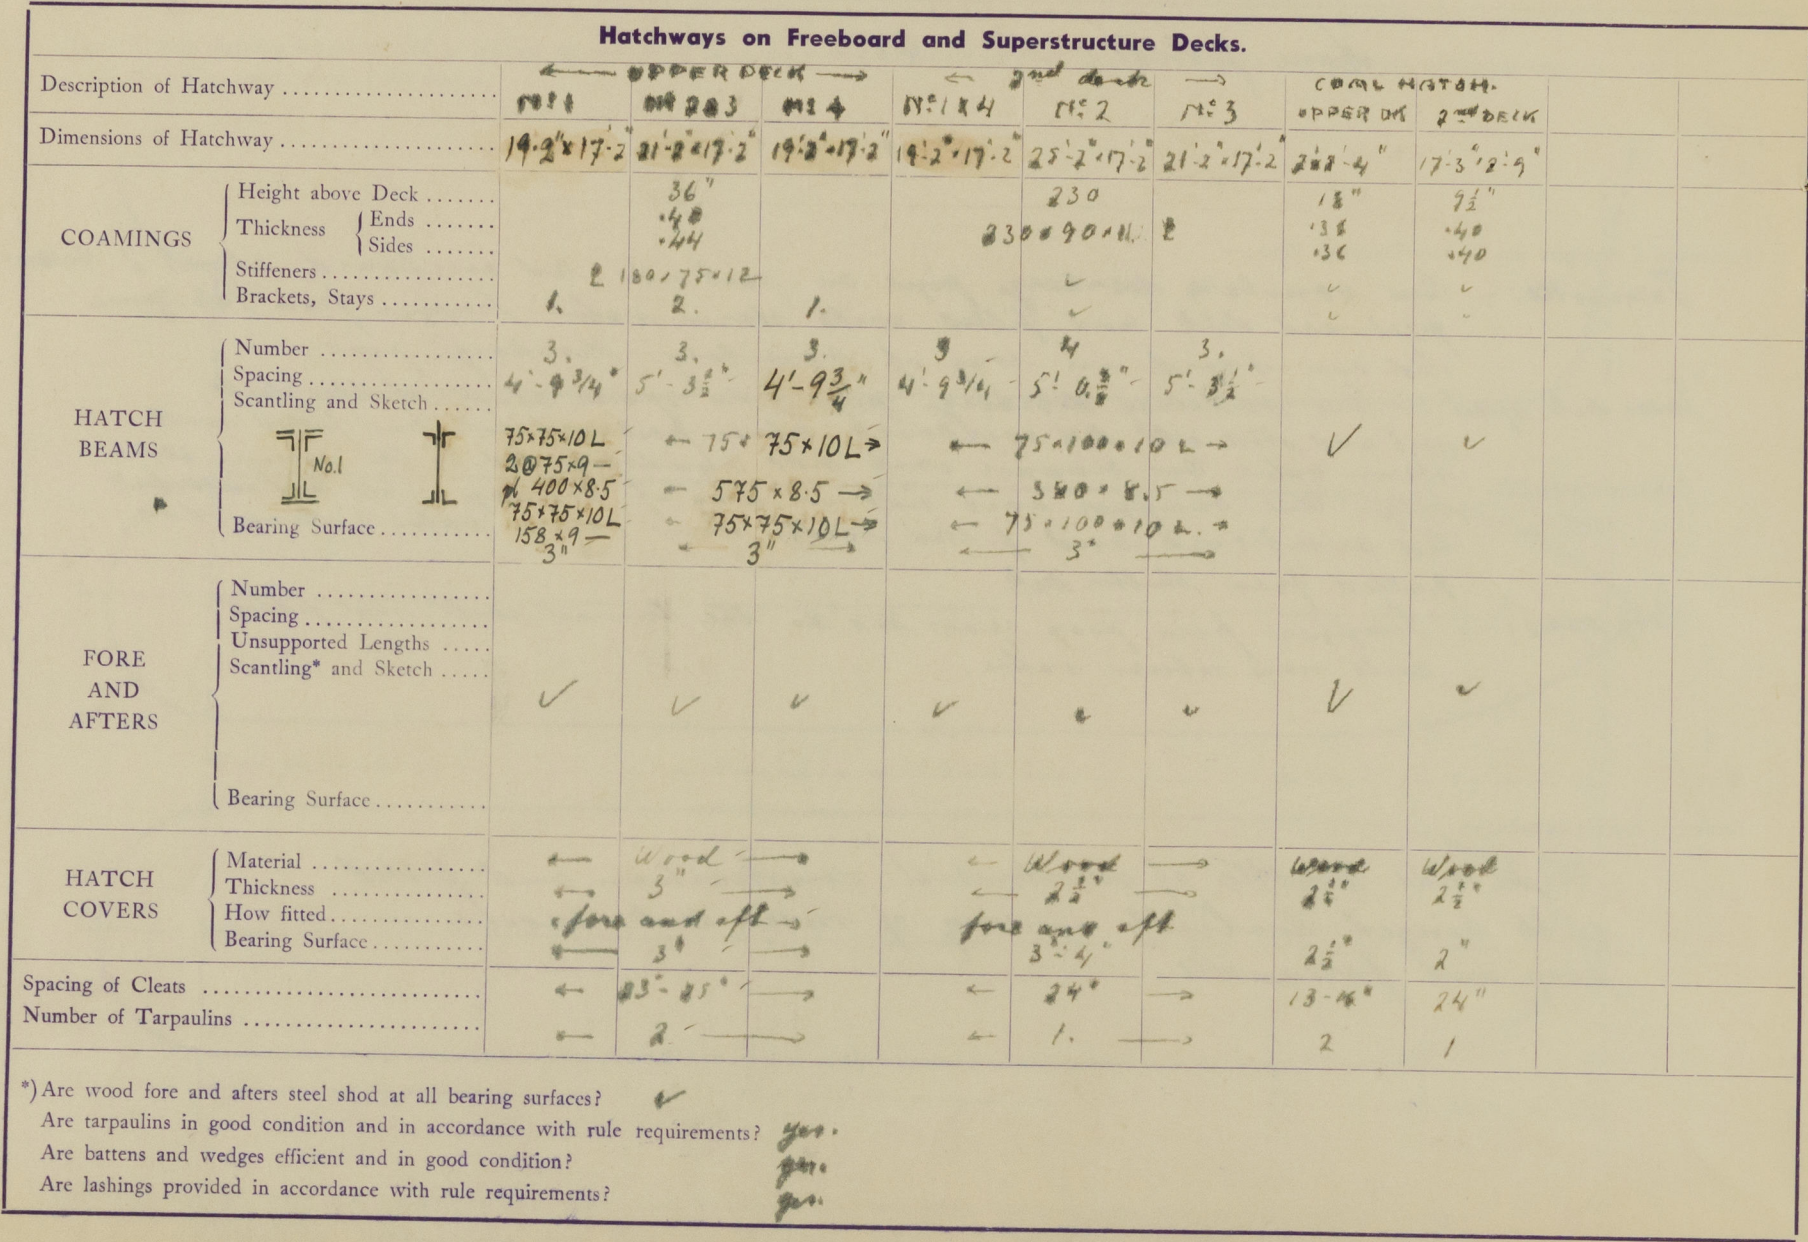 Hatchways on Freeboard and Superstructure Decks.
Description of Hatchway ← UPPER DECK → ← 2nd deck → COAL HATCH.
No 1 No 2 & 3 No 4 No 1 & 4 No 2 No 3 UPPER DK 2nd DECK
Dimensions of Hatchway 19'-2" x 17'-2" 21'-2" x 17'-2" 19'-2" x 17'-2" 19'-2" x 17'-2" 25'-2" x 17'-2" 21'-2" x 17'-2" 17'-3" x 2'-9"
COAMINGS
Height above Deck 36" 230 18" 9½"
Thickness
Ends .40 .40
Sides .44 230 x 90 x 11 .36 .40
Stiffeners 180 x 75 x 12 ✓ ✓ ✓
Brackets, Stays 1. 2. 1. ✓ ✓ ✓
HATCH BEAMS
Number 3. 3. 3. 3 4 3.
Spacing 4'-9¾" 5'-3½" 4'-9¾" 4'-9¾ 5'- 5'-3½"
Scantling and Sketch
No.1
75x75x10L ← 75x 75x10L → ← 75x100x10L → ✓ ✓
2@75x9 —
pl 400x8.5 ← 575x8.5 → ← 380x8.5 →
75x75x10L ← 75x75x10L → ← 75x100x10L. →
158x9 —
Bearing Surface 3" ← 3" → ← 3" →
FORE AND AFTERS
Number
Spacing
Unsupported Lengths
Scantling* and Sketch
✓ ✓ ✓ ✓ ✓ ✓ ✓ ✓
Bearing Surface
HATCH COVERS
Material ← Wood → ← Wood → Wood Wood
Thickness ← 3" → ← 2½" → 2½" 2½"
How fitted fore and aft → fore and aft
Bearing Surface ← 3" → 3"-4" 2½" 2"
Spacing of Cleats ← 23"-25" → ← 24" → 13-16" 24"
Number of Tarpaulins ← 2 → ← 1. → 2 1
*) Are wood fore and afters steel shod at all bearing surfaces? ✓
Are tarpaulins in good condition and in accordance with rule requirements? yes.
Are battens and wedges efficient and in good condition? yes.
Are lashings provided in accordance with rule requirements? yes.